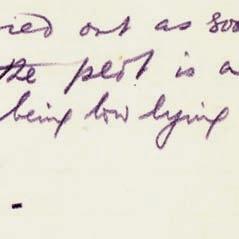 ried out as soo
the plot is a
being low lying